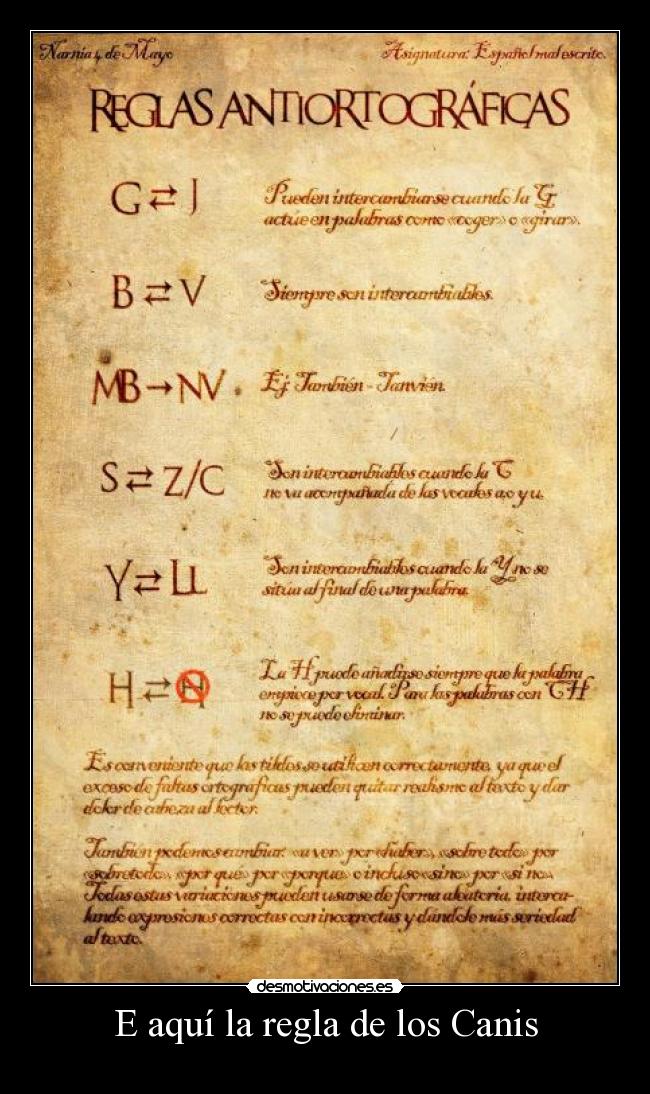 Narnia 4 de Mayo
Asignatura: Español mal escrito.
REGLAS ANTIORTOGRÁFICAS
G ⇄ J
Pueden intercambiarse cuando la G
actúe en palabras como «coger» o «girar».
B ⇄ V
Siempre son intercambiables.
MB → NV
Ej: También - Tanvién.
S ⇄ Z/C
Son intercambiables cuando la C
no va acompañada de las vocales a,o y u.
Y ⇄ LL
Son intercambiables cuando la Y no se
sitúa al final de una palabra.
H ⇄ H
La H puede añadirse siempre que la palabra
empiece por vocal. Para las palabras con CH
no se puede eliminar.
Es conveniente que las tildes se utilicen correctamente, ya que el
exceso de faltas ortograficas pueden quitar realismo al texto y dar
dolor de cabeza al lector.
También podemos cambiar: «a ver» por «haber», «sobre todo» por
«sobretodo», «por qué» por «porque» o incluso «sino» por «si no».
Todas estas variaciones pueden usarse de forma aleatoria, interca-
lando expresiones correctas con incorrectas y dándole más seriedad
al texto.
desmotivaciones.es
E aquí la regla de los Canis